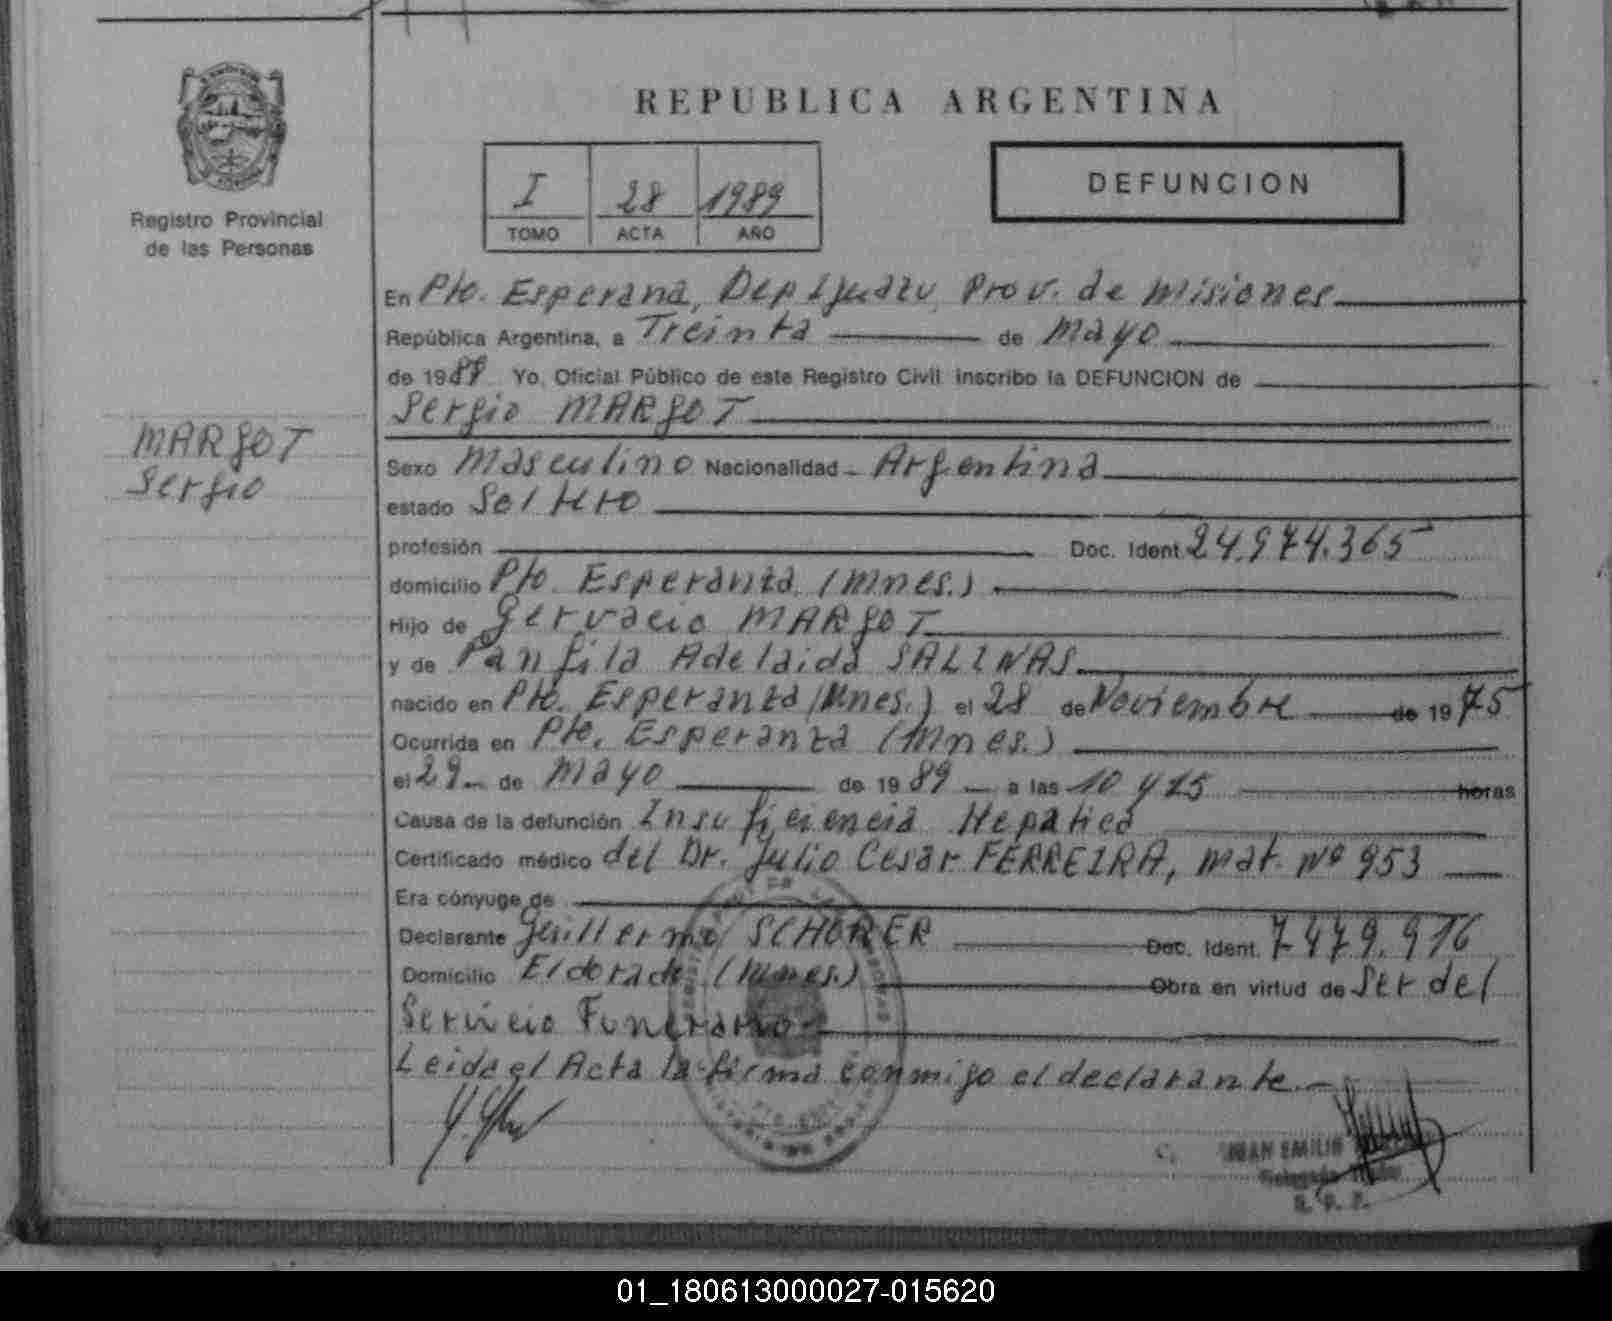 REPUBLICA ARGENTINA
Registro Provincial
de las Personas
I 28 1989
TOMO ACTA AÑO
DEFUNCION
MARGOT
Sergio
En Pto. Esperana, Dep Iguazu, Prov. de Misiones
República Argentina, a Treinta de Mayo
de 1989 Yo, Oficial Público de este Registro Civil inscribo la DEFUNCION de
Sergio MARGOT
Sexo Masculino Nacionalidad Argentina
estado Soltero
profesión Doc. Ident. 24.974.365
domicilio Pto. Esperanza (Mnes.)
Hijo de Gervacio MARGOT
y de Panfila Adelaida SALINAS
nacido en Pto. Esperanza (Mnes.) el 28 de Noviembre de 1975
Ocurrida en Pto. Esperanza (Mnes.)
el 29 de Mayo de 1989 a las 10 y 15 horas
Causa de la defunción Insuficiencia Hepatica
Certificado médico del Dr. Julio Cesar FERREIRA, Mat. Nº 953
Era cónyuge de
Declarante Guillermo SCHORER Doc. Ident. 7.479.916
Domicilio Eldorado (Mnes.) Obra en virtud de Ser del
Servicio Funerario
Leida el Acta la firma conmigo el declarante.
JUAN EMILIO
01_180613000027-015620